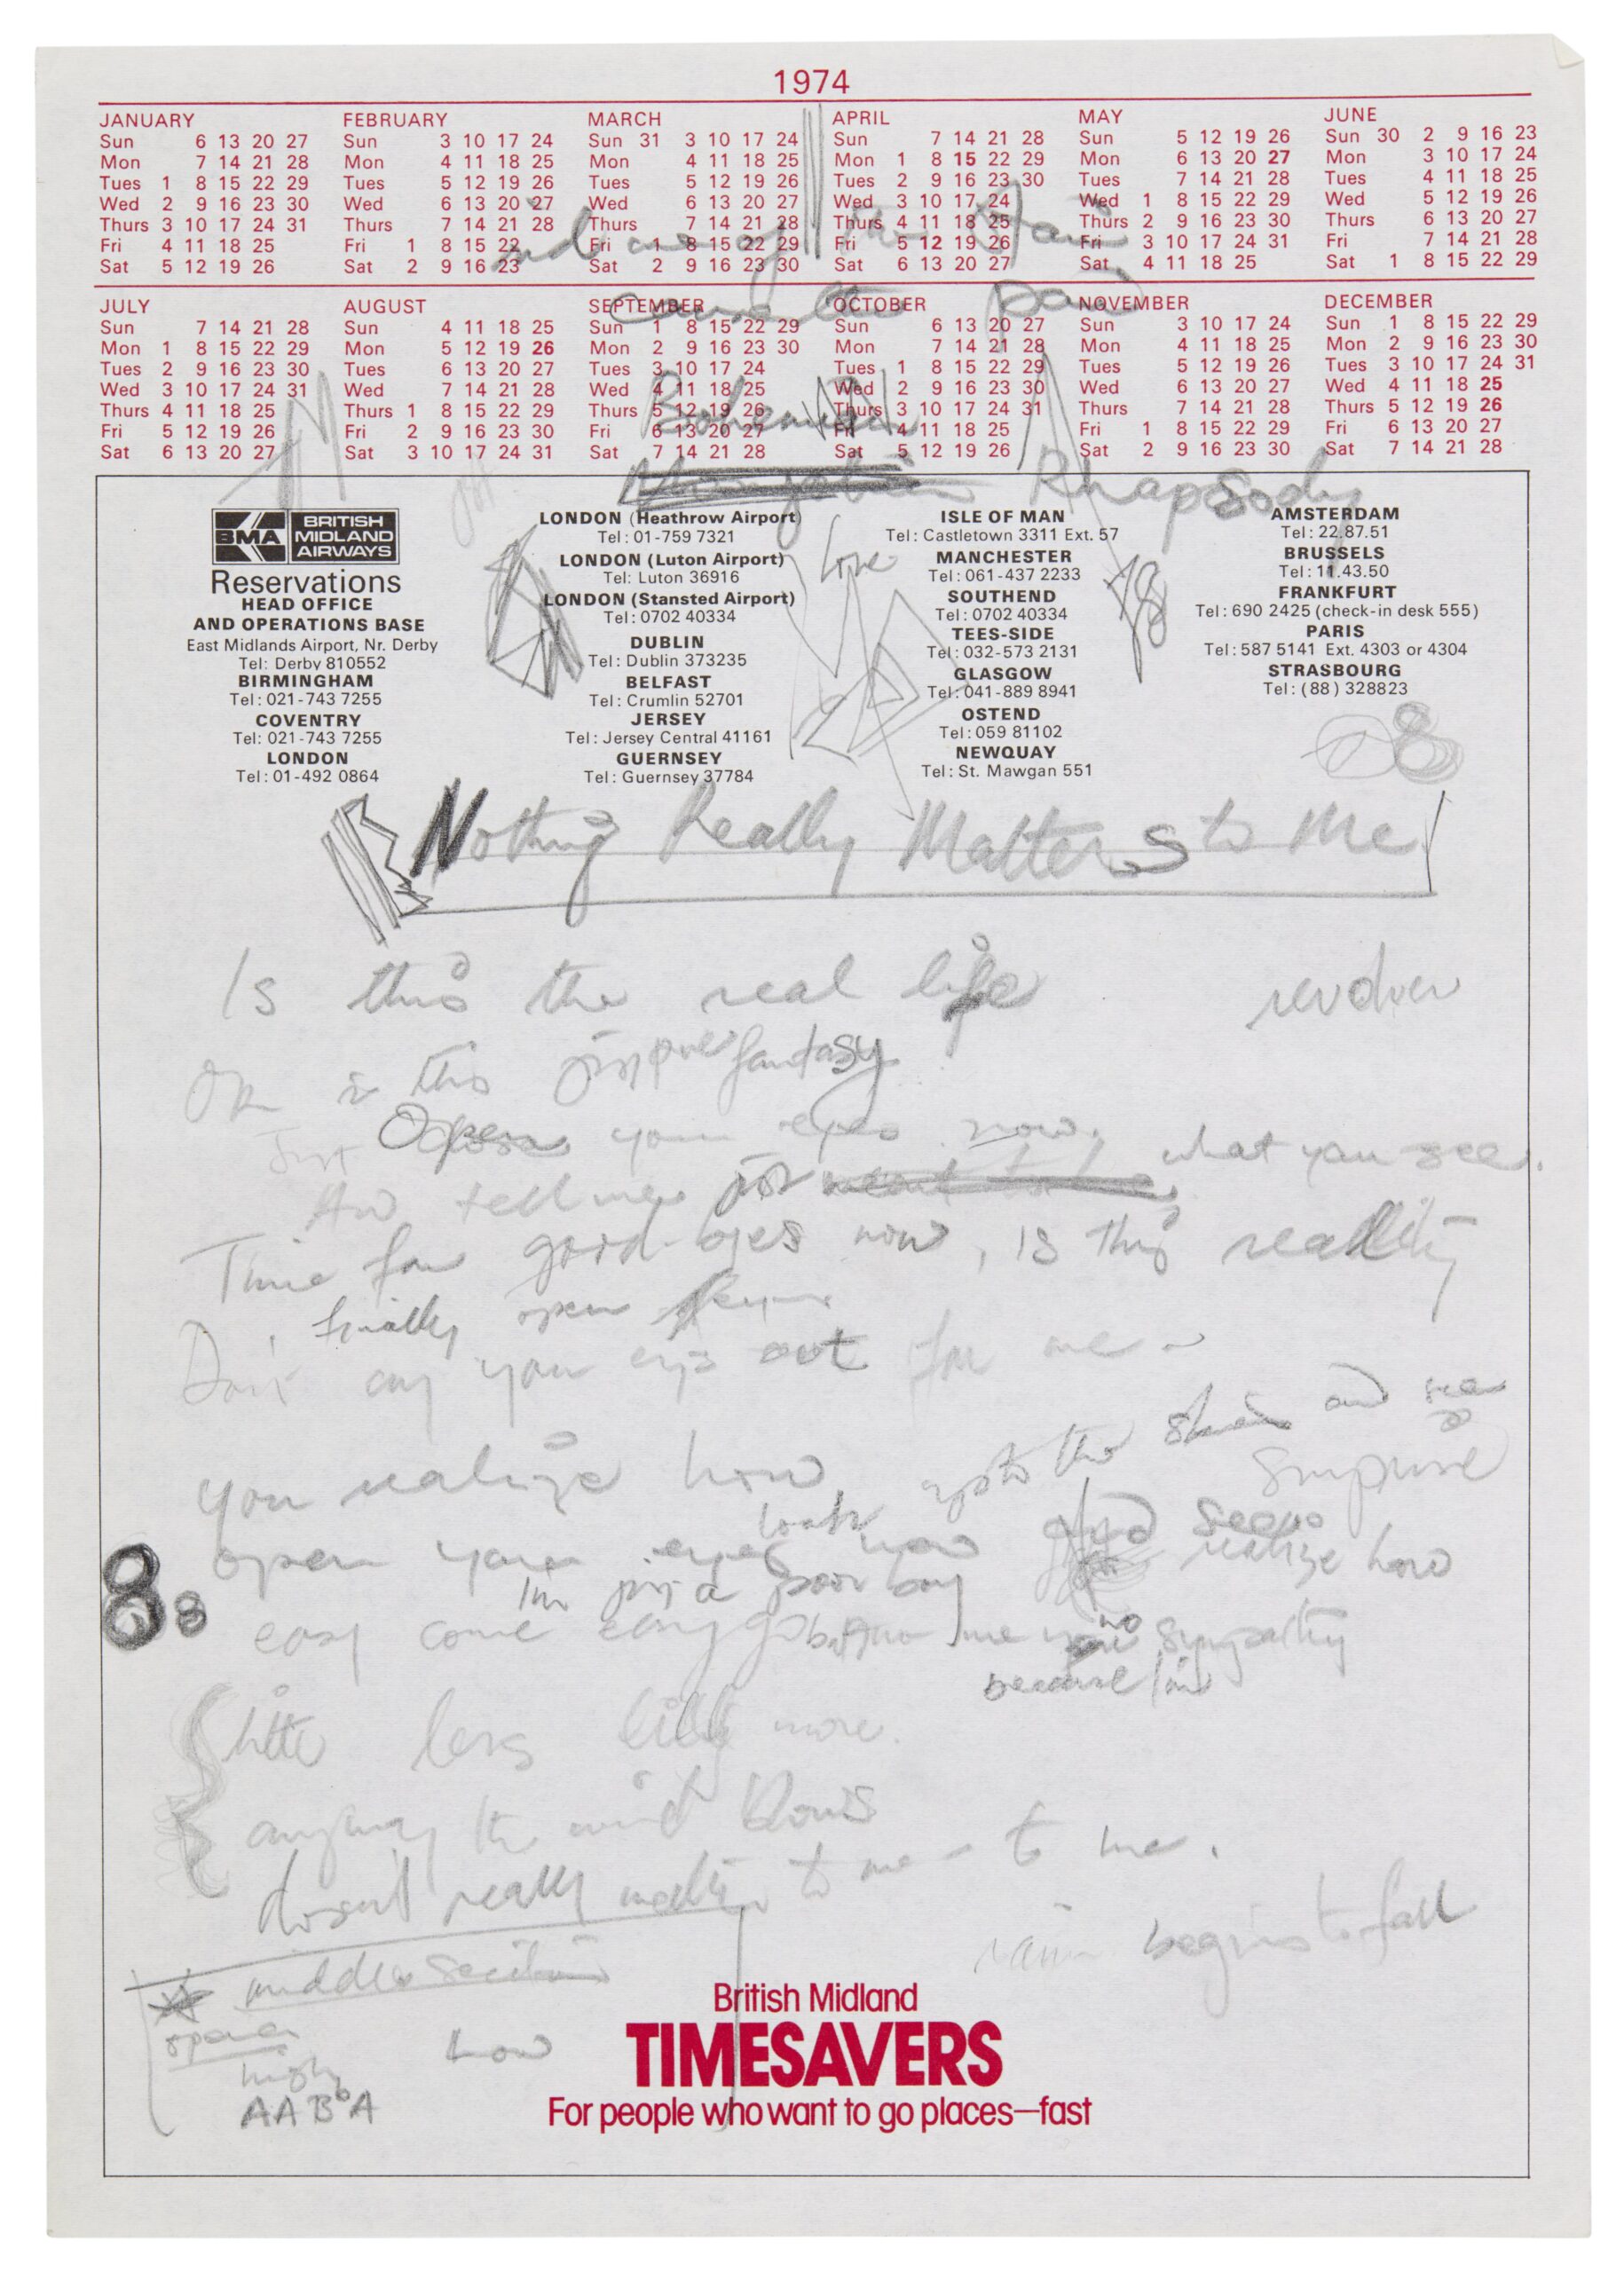 1974
JANUARY
Sun 6 13 20 27
Mon 7 14 21 28
Tues 1 8 15 22 29
Wed 2 9 16 23 30
Thurs 3 10 17 24 31
Fri 4 11 18 25
Sat 5 12 19 26
FEBRUARY
Sun 3 10 17 24
Mon 4 11 18 25
Tues 5 12 19 26
Wed 6 13 20 27
Thurs 7 14 21 28
Fri 1 8 15 22
Sat 2 9 16 23
MARCH
Sun 31 3 10 17 24
Mon 4 11 18 25
Tues 5 12 19 26
Wed 6 13 20 27
Thurs 7 14 21 28
Fri 1 8 15 22 29
Sat 2 9 16 23 30
APRIL
Sun 7 14 21 28
Mon 1 8 15 22 29
Tues 2 9 16 23 30
Wed 3 10 17 24
Thurs 4 11 18 25
Fri 5 12 19 26
Sat 6 13 20 27
MAY
Sun 5 12 19 26
Mon 6 13 20 27
Tues 7 14 21 28
Wed 1 8 15 22 29
Thurs 2 9 16 23 30
Fri 3 10 17 24 31
Sat 4 11 18 25
JUNE
Sun 30 2 9 16 23
Mon 3 10 17 24
Tues 4 11 18 25
Wed 5 12 19 26
Thurs 6 13 20 27
Fri 7 14 21 28
Sat 1 8 15 22 29
JULY
Sun 7 14 21 28
Mon 1 8 15 22 29
Tues 2 9 16 23 30
Wed 3 10 17 24 31
Thurs 4 11 18 25
Fri 5 12 19 26
Sat 6 13 20 27
AUGUST
Sun 4 11 18 25
Mon 5 12 19 26
Tues 6 13 20 27
Wed 7 14 21 28
Thurs 1 8 15 22 29
Fri 2 9 16 23 30
Sat 3 10 17 24 31
SEPTEMBER
Sun 1 8 15 22 29
Mon 2 9 16 23 30
Tues 3 10 17 24
Wed 4 11 18 25
Thurs 5 12 19 26
Fri 6 13 20 27
Sat 7 14 21 28
OCTOBER
Sun 6 13 20 27
Mon 7 14 21 28
Tues 1 8 15 22 29
Wed 2 9 16 23 30
Thurs 3 10 17 24 31
Fri 4 11 18 25
Sat 5 12 19 26
NOVEMBER
Sun 3 10 17 24
Mon 4 11 18 25
Tues 5 12 19 26
Wed 6 13 20 27
Thurs 7 14 21 28
Fri 1 8 15 22 29
Sat 2 9 16 23 30
DECEMBER
Sun 1 8 15 22 29
Mon 2 9 16 23 30
Tues 3 10 17 24 31
Wed 4 11 18 25
Thurs 5 12 19 26
Fri 6 13 20 27
Sat 7 14 21 28
Bohemian
Mongolian Rhapsody
BMA BRITISH MIDLAND AIRWAYS
Reservations
HEAD OFFICE
AND OPERATIONS BASE
East Midlands Airport, Nr. Derby
Tel: Derby 810552
BIRMINGHAM
Tel: 021-743 7255
COVENTRY
Tel: 021-743 7255
LONDON
Tel: 01-492 0864
LONDON (Heathrow Airport)
Tel: 01-759 7321
LONDON (Luton Airport)
Tel: Luton 36916
LONDON (Stansted Airport)
Tel: 0702 40334
DUBLIN
Tel: Dublin 373235
BELFAST
Tel: Crumlin 52701
JERSEY
Tel: Jersey Central 41161
GUERNSEY
Tel: Guernsey 37784
love
ISLE OF MAN
Tel: Castletown 3311 Ext. 57
MANCHESTER
Tel: 061-437 2233
SOUTHEND
Tel: 0702 40334
TEES-SIDE
Tel: 032-573 2131
GLASGOW
Tel: 041-889 8941
OSTEND
Tel: 059 81102
NEWQUAY
Tel: St. Mawgan 551
AMSTERDAM
Tel: 22.87.51
BRUSSELS
Tel: 11.43.50
FRANKFURT
Tel: 690 2425 (check-in desk 555)
PARIS
Tel: 587 5141 Ext. 4303 or 4304
STRASBOURG
Tel: (88) 328823
8
Nothing Really Matters to Me
Is this the real life
revolver
Or is this just pure fantasy
Just Open your eyes now
what you see.
And tell me
Time for good-byes now, is this reality
finally open
Don't cry your eyes out for me
up to the skies and see
you realize how
surprise
look
open your eyes now and see
realize how
I'm just a poor boy
8 8
easy come easy go but show me no sympathy
because I'm
little less little more.
anyway the wind blows
doesn't really matter to me - to me.
rain begins to fall
middle section
opera
high
low
AAB♭A
British Midland
TIMESAVERS
For people who want to go places—fast